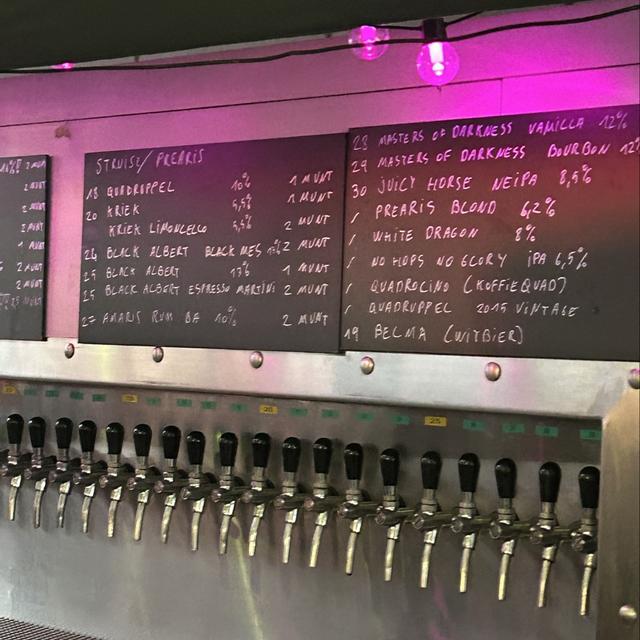 2 MUNT
2 MUNT
2 MUNT
2 MUNT
1 MUNT
2 MUNT
2 MUNT
STRUISE/ PREARIS
18 QUADRUPPEL 10% 1 MUNT
20 KRIEK 5,5% 1 MUNT
KRIEK LIMONCELLO 5,5% 2 MUNT
24 BLACK ALBERT BLACK MES 2 MUNT
25 BLACK ALBERT 13% 1 MUNT
25 BLACK ALBERT ESPRESSO MARTINI 2 MUNT
27 AMARIS RUM BA 10% 2 MUNT
28 MASTERS OF DARKNESS VANILLA 12%
29 MASTERS OF DARKNESS BOURBON 12%
30 JUICY HORSE NEIPA 8,5%
/ PREARIS BLOND 6,2%
/ WHITE DRAGON 8%
/ NO HOPS NO GLORY IPA 6,5%
/ QUADROCINO (KOFFIEQUAD)
/ QUADRUPPEL 2015 VINTAGE
19 BELMA (WITBIER)
20
25